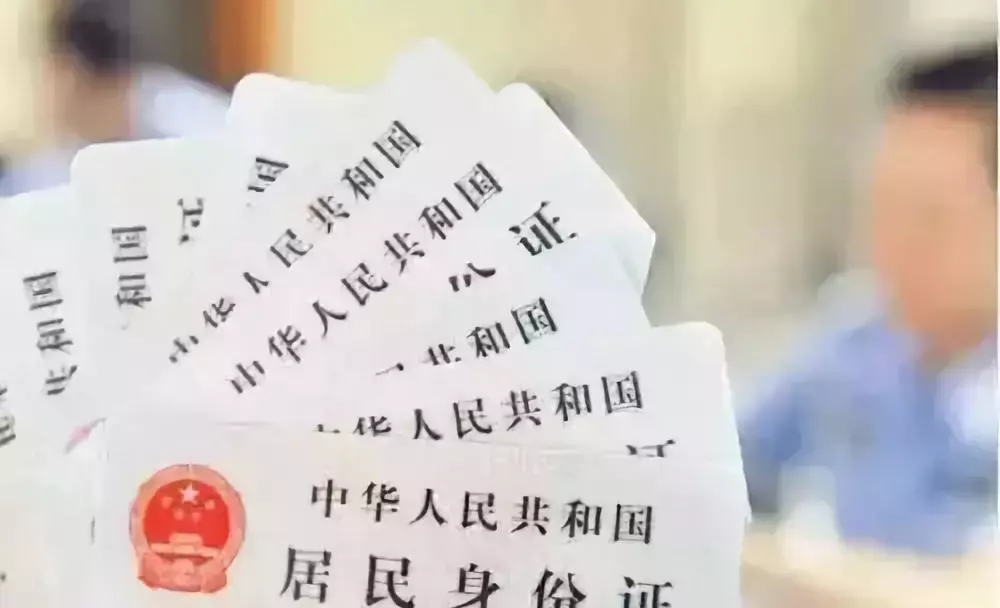 和国
共和国
国
证
中华人民共和国
中华人民共和国
份证
共和国
中华人民共和国
证
中华人民共和国
居民身份证